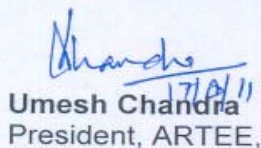 Chandra
17/8/11
Umesh Chandra
President, ARTEE,